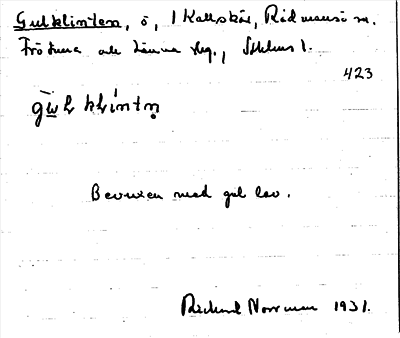 Gulklinten, ö, 1 Kallskär, Rådmansö sn.
Frötuna och Länna skg., Sthlms l.
423
Bevuxen med gul lav.
Rickard Norrman 1931.